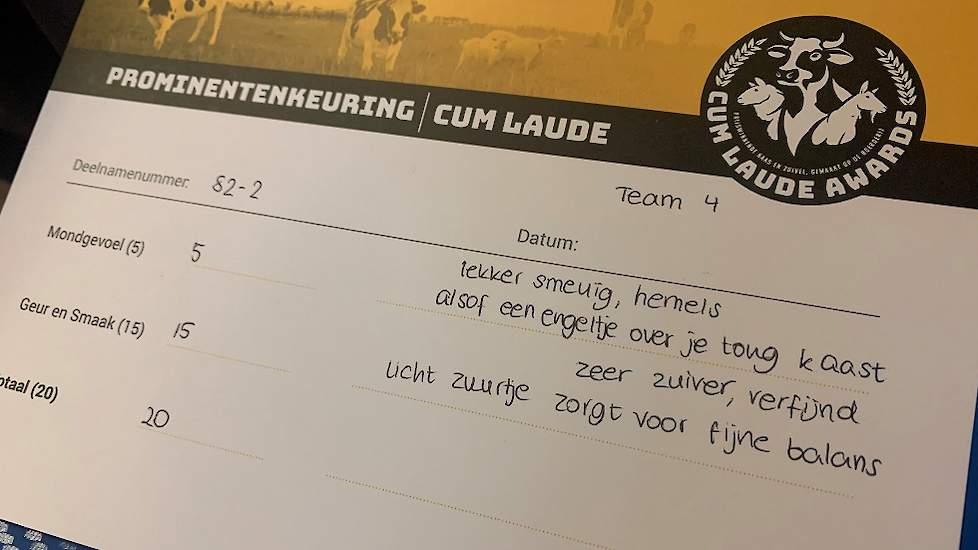 PROMINENTENKEURING | CUM LAUDE
CUM LAUDE AWARDS
Deelnamenummer: 82-2
Team 4
Datum:
Mondgevoel (5) 5
lekker smeuïg, hemels
alsof een engeltje over je tong kaast
Geur en Smaak (15) 15
zeer zuiver, verfijnd
licht zuurtje zorgt voor fijne balans
otaal (20) 20